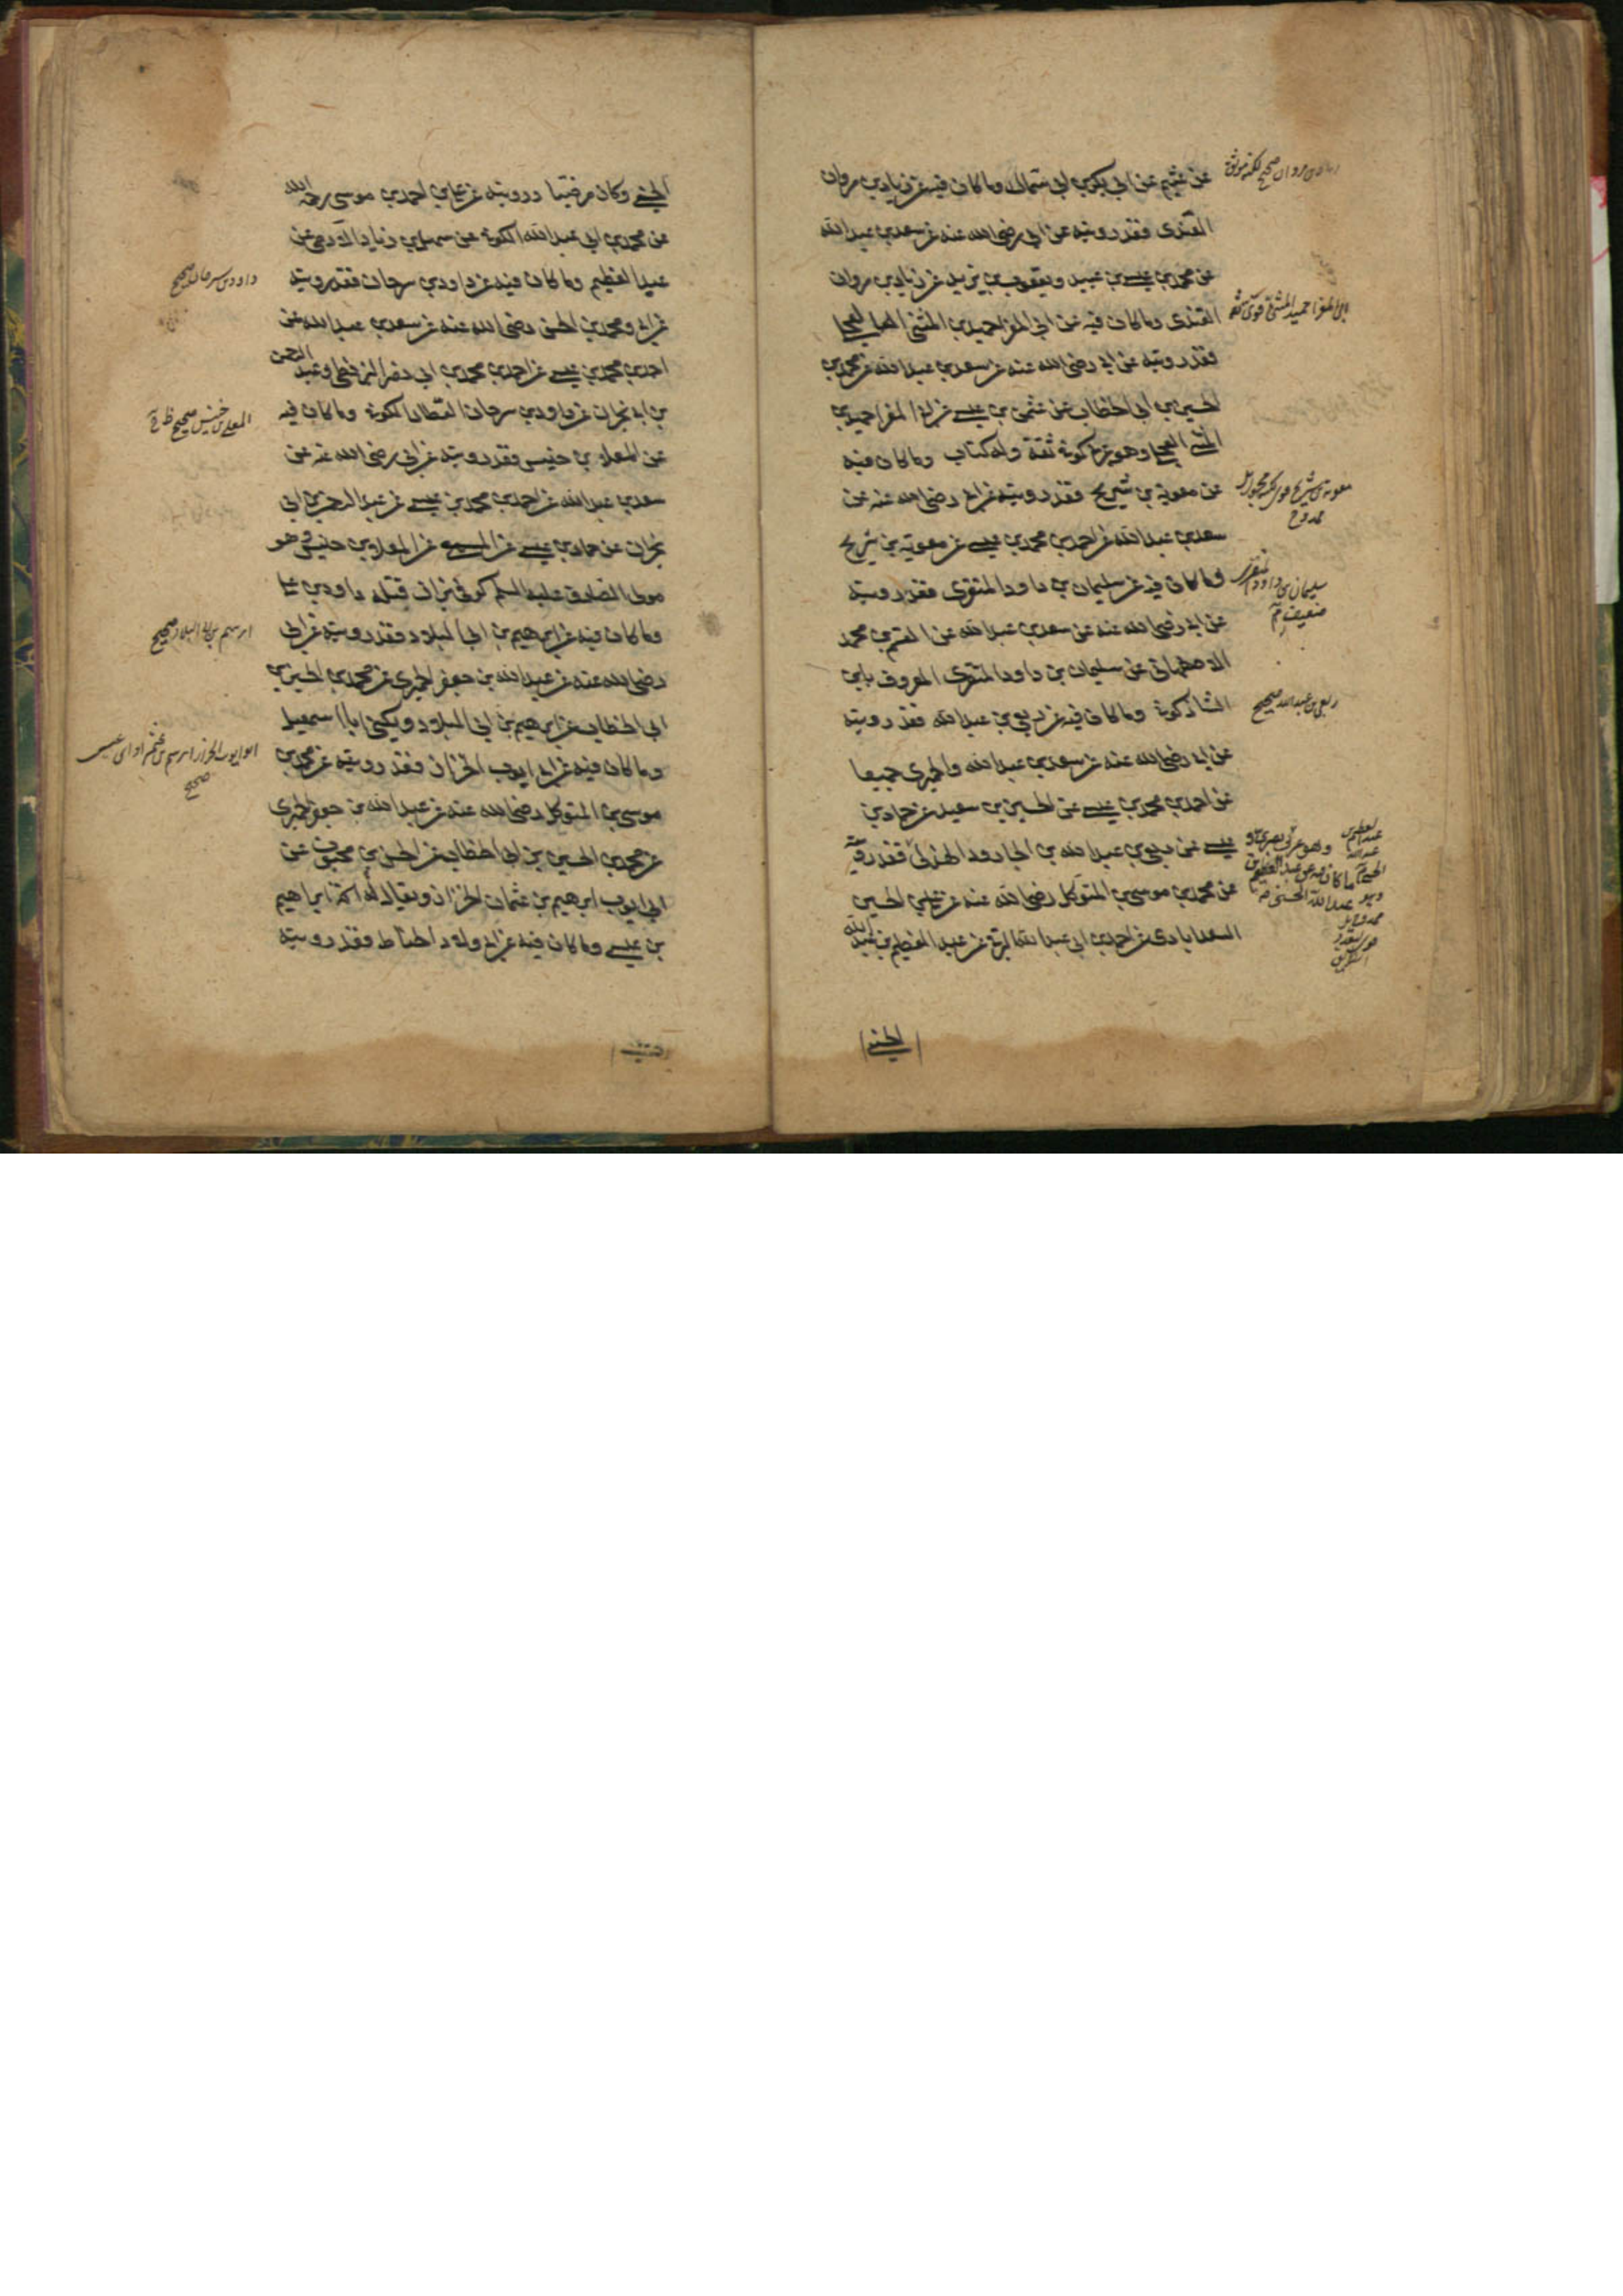 عن عثيم عن ابي بكر بن ابي سمال وما كان فيه عن زياد بن مروان
القندى فقد رويته عن ابي رضى الله عنه عن سعد بن عبد الله
عن محمد بن عيسى بن عبيد ويعقوب بن يزيد عن زياد بن مروان
القندى وما كان فيه عن ابي المغرا حميد بن المثنى العجلى
فقد رويته عن ابي رضى الله عنه عن سعد بن عبد الله عن محمد بن
الحسين بن ابي الخطاب عن عثمن بن عيسى عن ابي المغرا حميد بن
المثنى العجلى وهو عربى كوفى ثقة وله كتاب وما كان فيه
عن معوية بن شريح فقد رويته عن ابي رضى الله عنه عن
سعد بن عبد الله عن احمد بن محمد بن عيسى عن معوية بن شريح
وما كان فيه عن سليمان بن داود المنقرى فقد رويته
عن ابي رضى الله عنه عن سعد بن عبد الله عن القسم بن محمد
الاصفهانى عن سليمان بن داود المنقرى المعروف بابن
الشاذكونى وما كان فيه عن ربعى بن عبد الله فقد رويته
عن ابي رضى الله عنه عن سعد بن عبد الله والحميرى جميعا
عن احمد بن محمد بن عيسى عن الحسين بن سعيد عن حماد بن
عيسى عن ربعى بن عبد الله بن الجارود الهذلى فقد رويته
عن محمد بن موسى بن المتوكل رضى الله عنه عن على بن الحسين
السعدابادى عن احمد بن ابي عبد الله البرقى عن عبد العظيم بن عبد الله
الحسنى
صحيح لكنه موثق
ابى المغرا حميد المثنى قوى
معوية بن شريح
ممدوح
سليمان بن داود المنقرى
ضعيف
ربعى بن عبد الله صحيح
وهو عربى بصرى
ما كان فيه عن عبد العظيم
عبد الله الحسنى
الحسنى وكان مرضيا رويته عن على بن احمد بن موسى رحمه الله
عن محمد بن ابي عبد الله الكوفى عن سهل بن زياد الادمى عن
عبد العظيم وما كان فيه عن داود بن سرحان فقد رويته
عن ابي ومحمد بن الحسن رضى الله عنه عن سعد بن عبد الله عن
احمد بن محمد بن عيسى عن احمد بن محمد بن ابي نصر البزنطى وعبد الرحمن
بن ابي نجران عن داود بن سرحان العطار الكوفى وما كان فيه
عن المعلى بن خنيس فقد رويته عن ابي رضى الله عنه عن
سعد بن عبد الله عن احمد بن محمد بن عيسى عن عبد الرحمن بن ابي
نجران عن حماد بن عيسى عن المسمعى عن المعلى بن خنيس وهو
مولى الصادق عليه السلم كوفى بزاز قتله داود بن على
وما كان فيه عن ابرهيم بن ابي البلاد فقد رويته عن ابي
رضى الله عنه عن عبد الله بن جعفر الحميرى عن محمد بن الحسين بن
ابي الخطاب عن ابرهيم بن ابي البلاد ويكنى ابا اسمعيل
وما كان فيه عن ابي ايوب الخزاز فقد رويته عن محمد بن
موسى بن المتوكل رضى الله عنه عن عبد الله بن جعفر الحميرى
عن محمد بن الحسين بن ابي الخطاب عن الحسن بن محبوب عن
ابي ايوب ابرهيم بن عثمان الخزاز ويقال له انه ابراهيم
بن عيسى وما كان فيه عن ابي ولاد الحناط فقد رويته
داود بن سرحان صحيح
المعلى بن خنيس صحيح
ابرهيم بن ابى البلاد صحيح
ابو ايوب الخزاز ابرهيم بن عثمن او ابن عيسى
صحيح